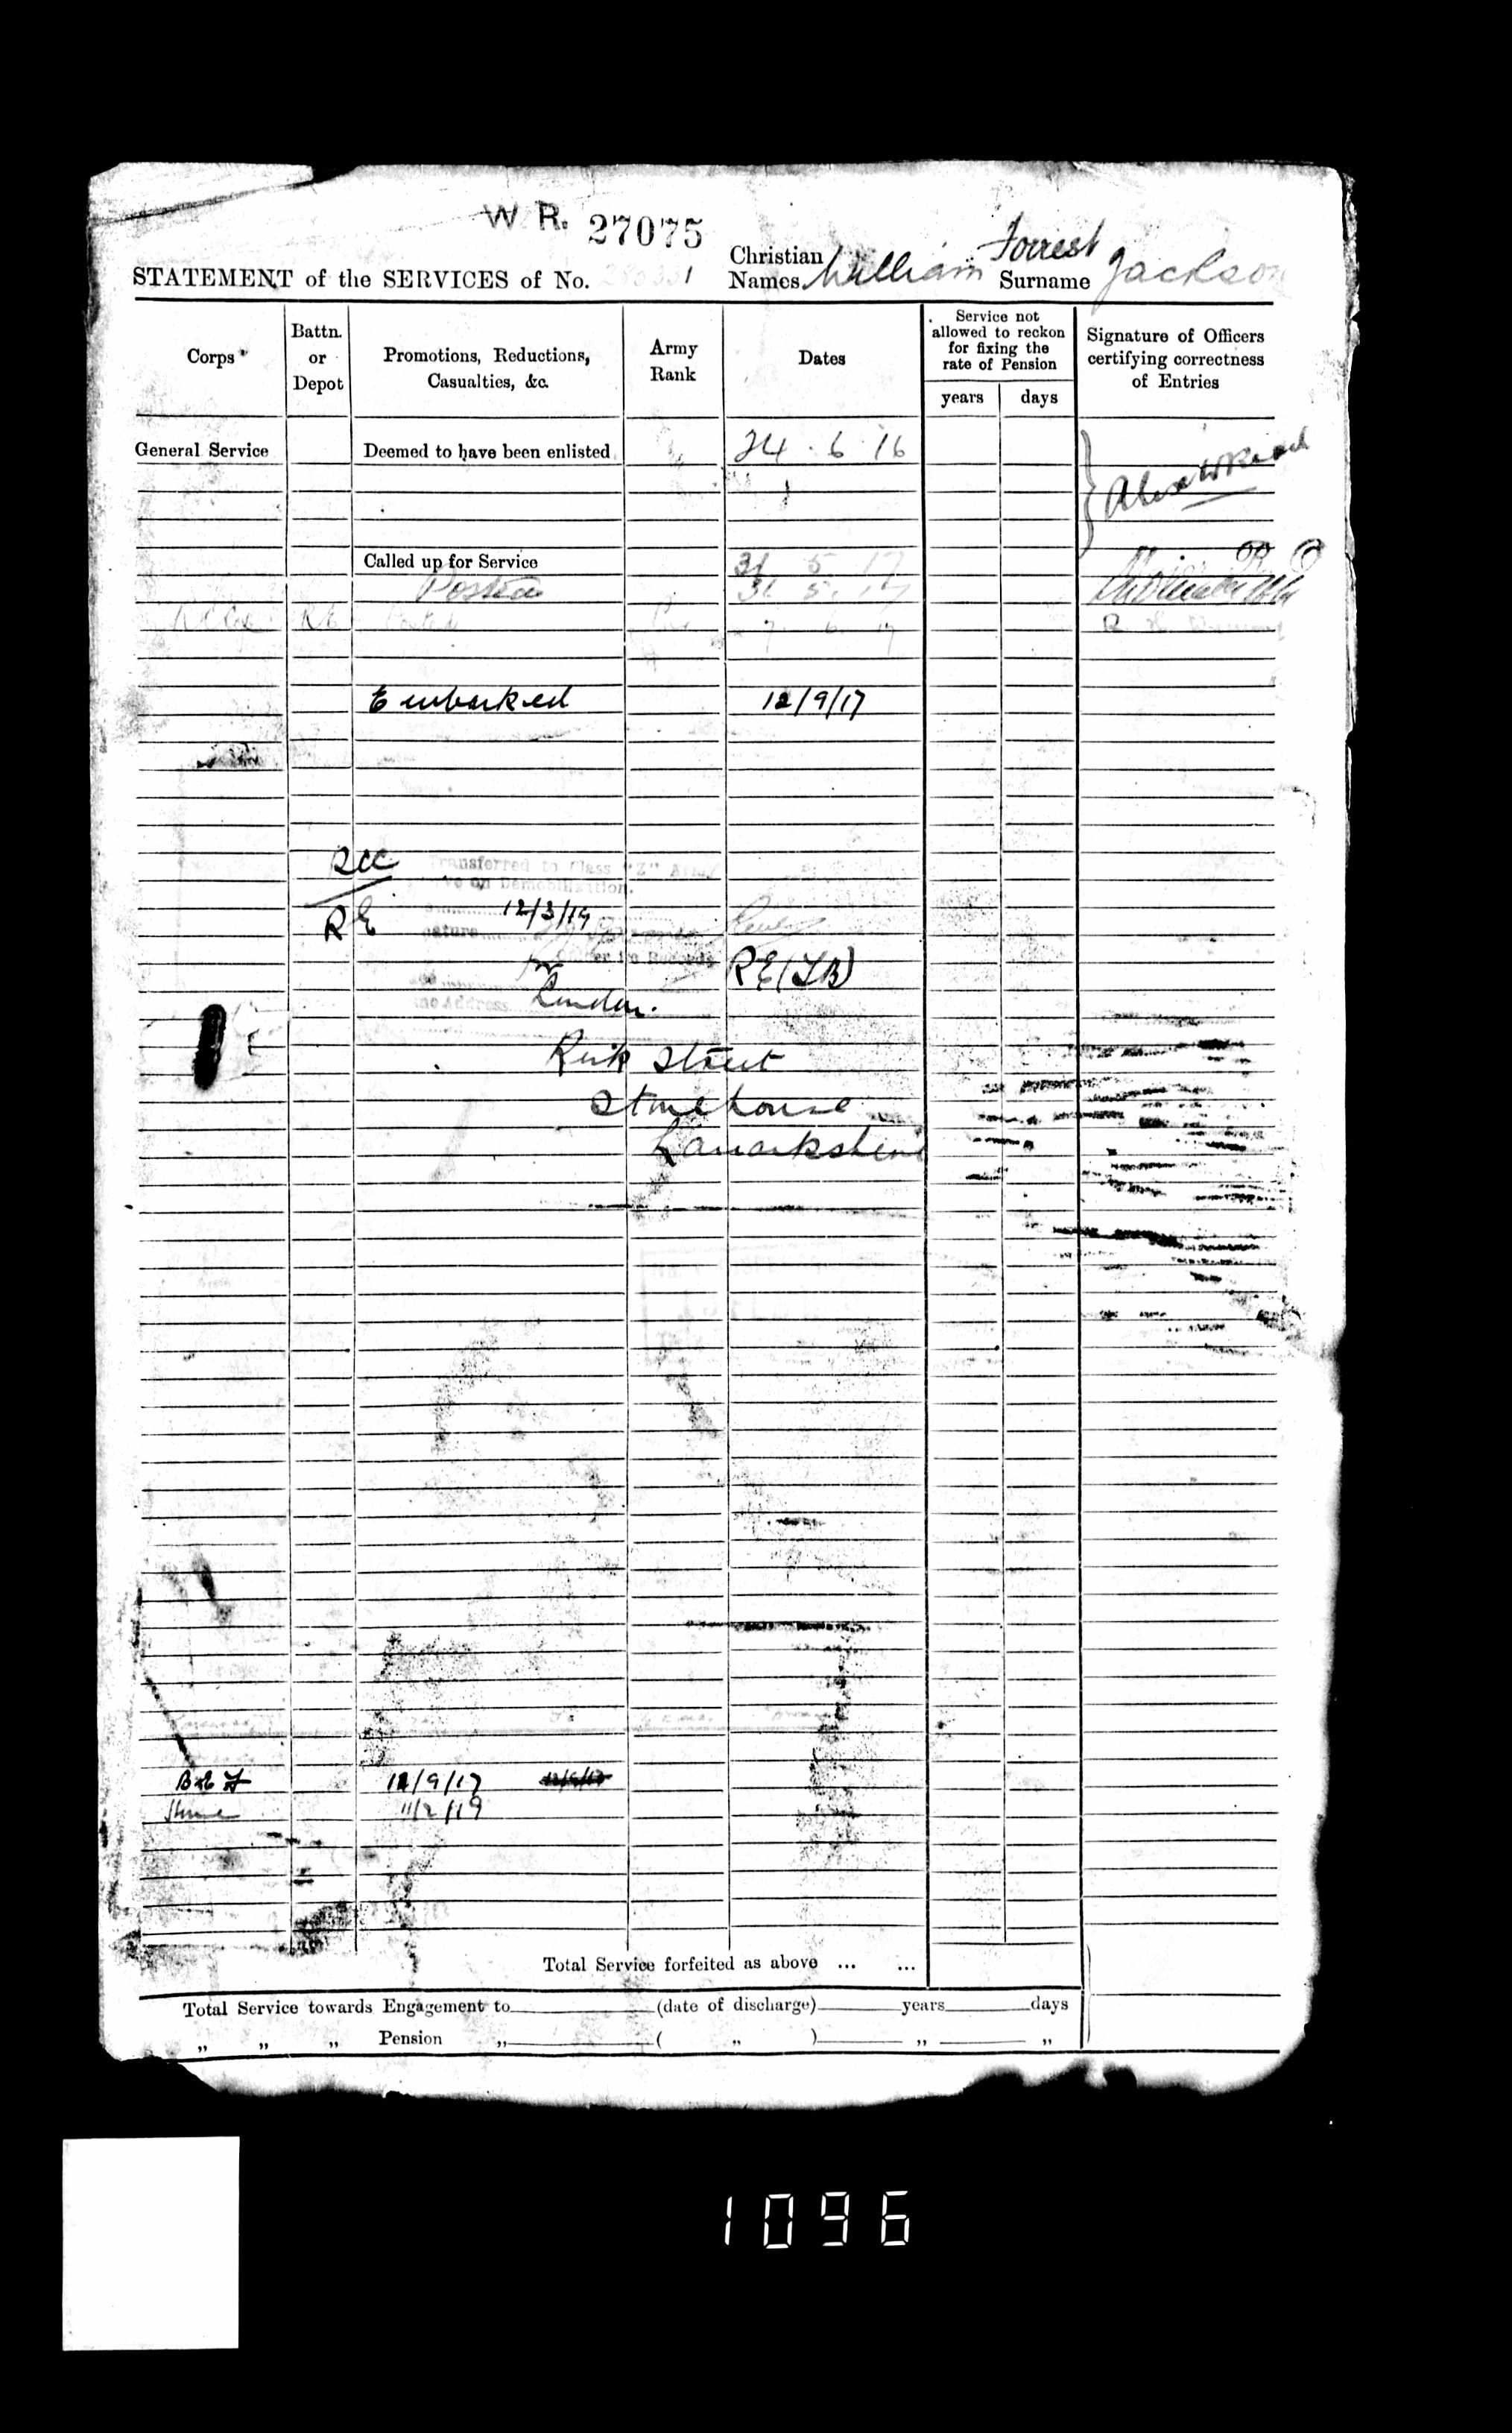 W.R. 27075
Christian Names William Forrest Surname Jackson
STATEMENT of the SERVICES of No.
Corps
Battn. or Depot
Promotions, Reductions, Casualties, &c.
Army Rank
Dates
Service not allowed to reckon for fixing the rate of Pension
years days
Signature of Officers certifying correctness of Entries
General Service Deemed to have been enlisted 24 . 6 . 16
Called up for Service 31 5 17
Posted 31. 5. 17
RE 7 6 17
Embarked 12/9/17
Transferred to Class "Z" Army
on Demobilisation.
RE 12/3/19
for RE (
London.
Address
Street
Stonehouse
Lanarkshire
B.E.F 12/9/17
Home 11/2/19
Total Service forfeited as above ... ...
Total Service towards Engagement to (date of discharge) years days
„ „ „ Pension „ ( „ ) „ „
1096